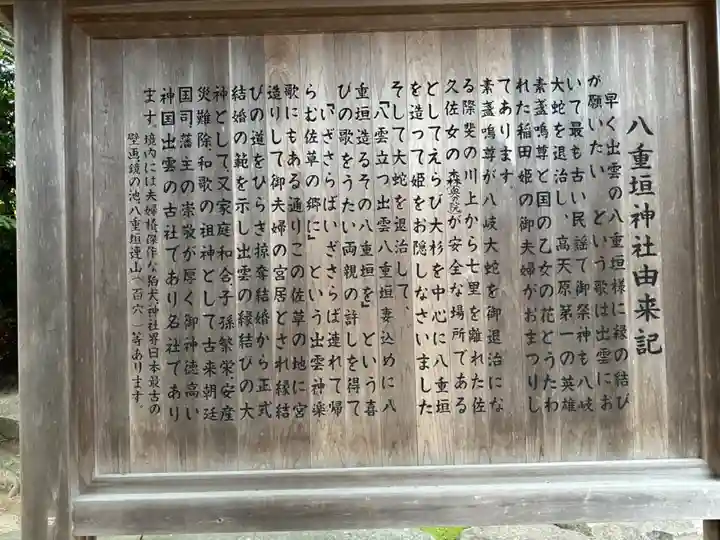 八重垣神社由来記
早く出雲の八重垣様に縁の結び
が願いたい という歌は出雲にお
いて最も古い民謡で御祭神も八岐
大蛇を退治し、高天原第一の英雄
素盞嗚尊と国の乙女の花とうたわ
れた稲田姫の御夫婦がおまつりし
てあります。
素盞嗚尊が八岐大蛇を御退治にな
る際斐の川上から七里を離れた佐
久佐女の森(奥の院)が安全な場所である
としてえらび大杉を中心に八重垣
を造って姫をお隠しなさいました
そして大蛇を退治して、
「八雲立つ出雲八重垣妻込めに八
重垣造るその八重垣を」 という喜
びの歌をうたい両親の許しを得て
「いざさらばいざさらば連れて帰
らむ佐草の郷に」 という出雲神楽
歌にもある通りこの佐草の地に宮
造りして御夫婦の宮居とされ縁結
びの道をひらき掠奪結婚から正式
結婚の範を示し出雲の縁結びの大
神として、又家庭和合、子孫繁栄安産
災難除和歌の祖神として古来朝廷
国司藩主の崇敬が厚く御神徳高い
神国出雲の古社であり名社であり
ます。境内には夫婦椿傑作な狛犬、神社界日本最古の
壁画鏡の池八重垣連山(百穴)等あります。